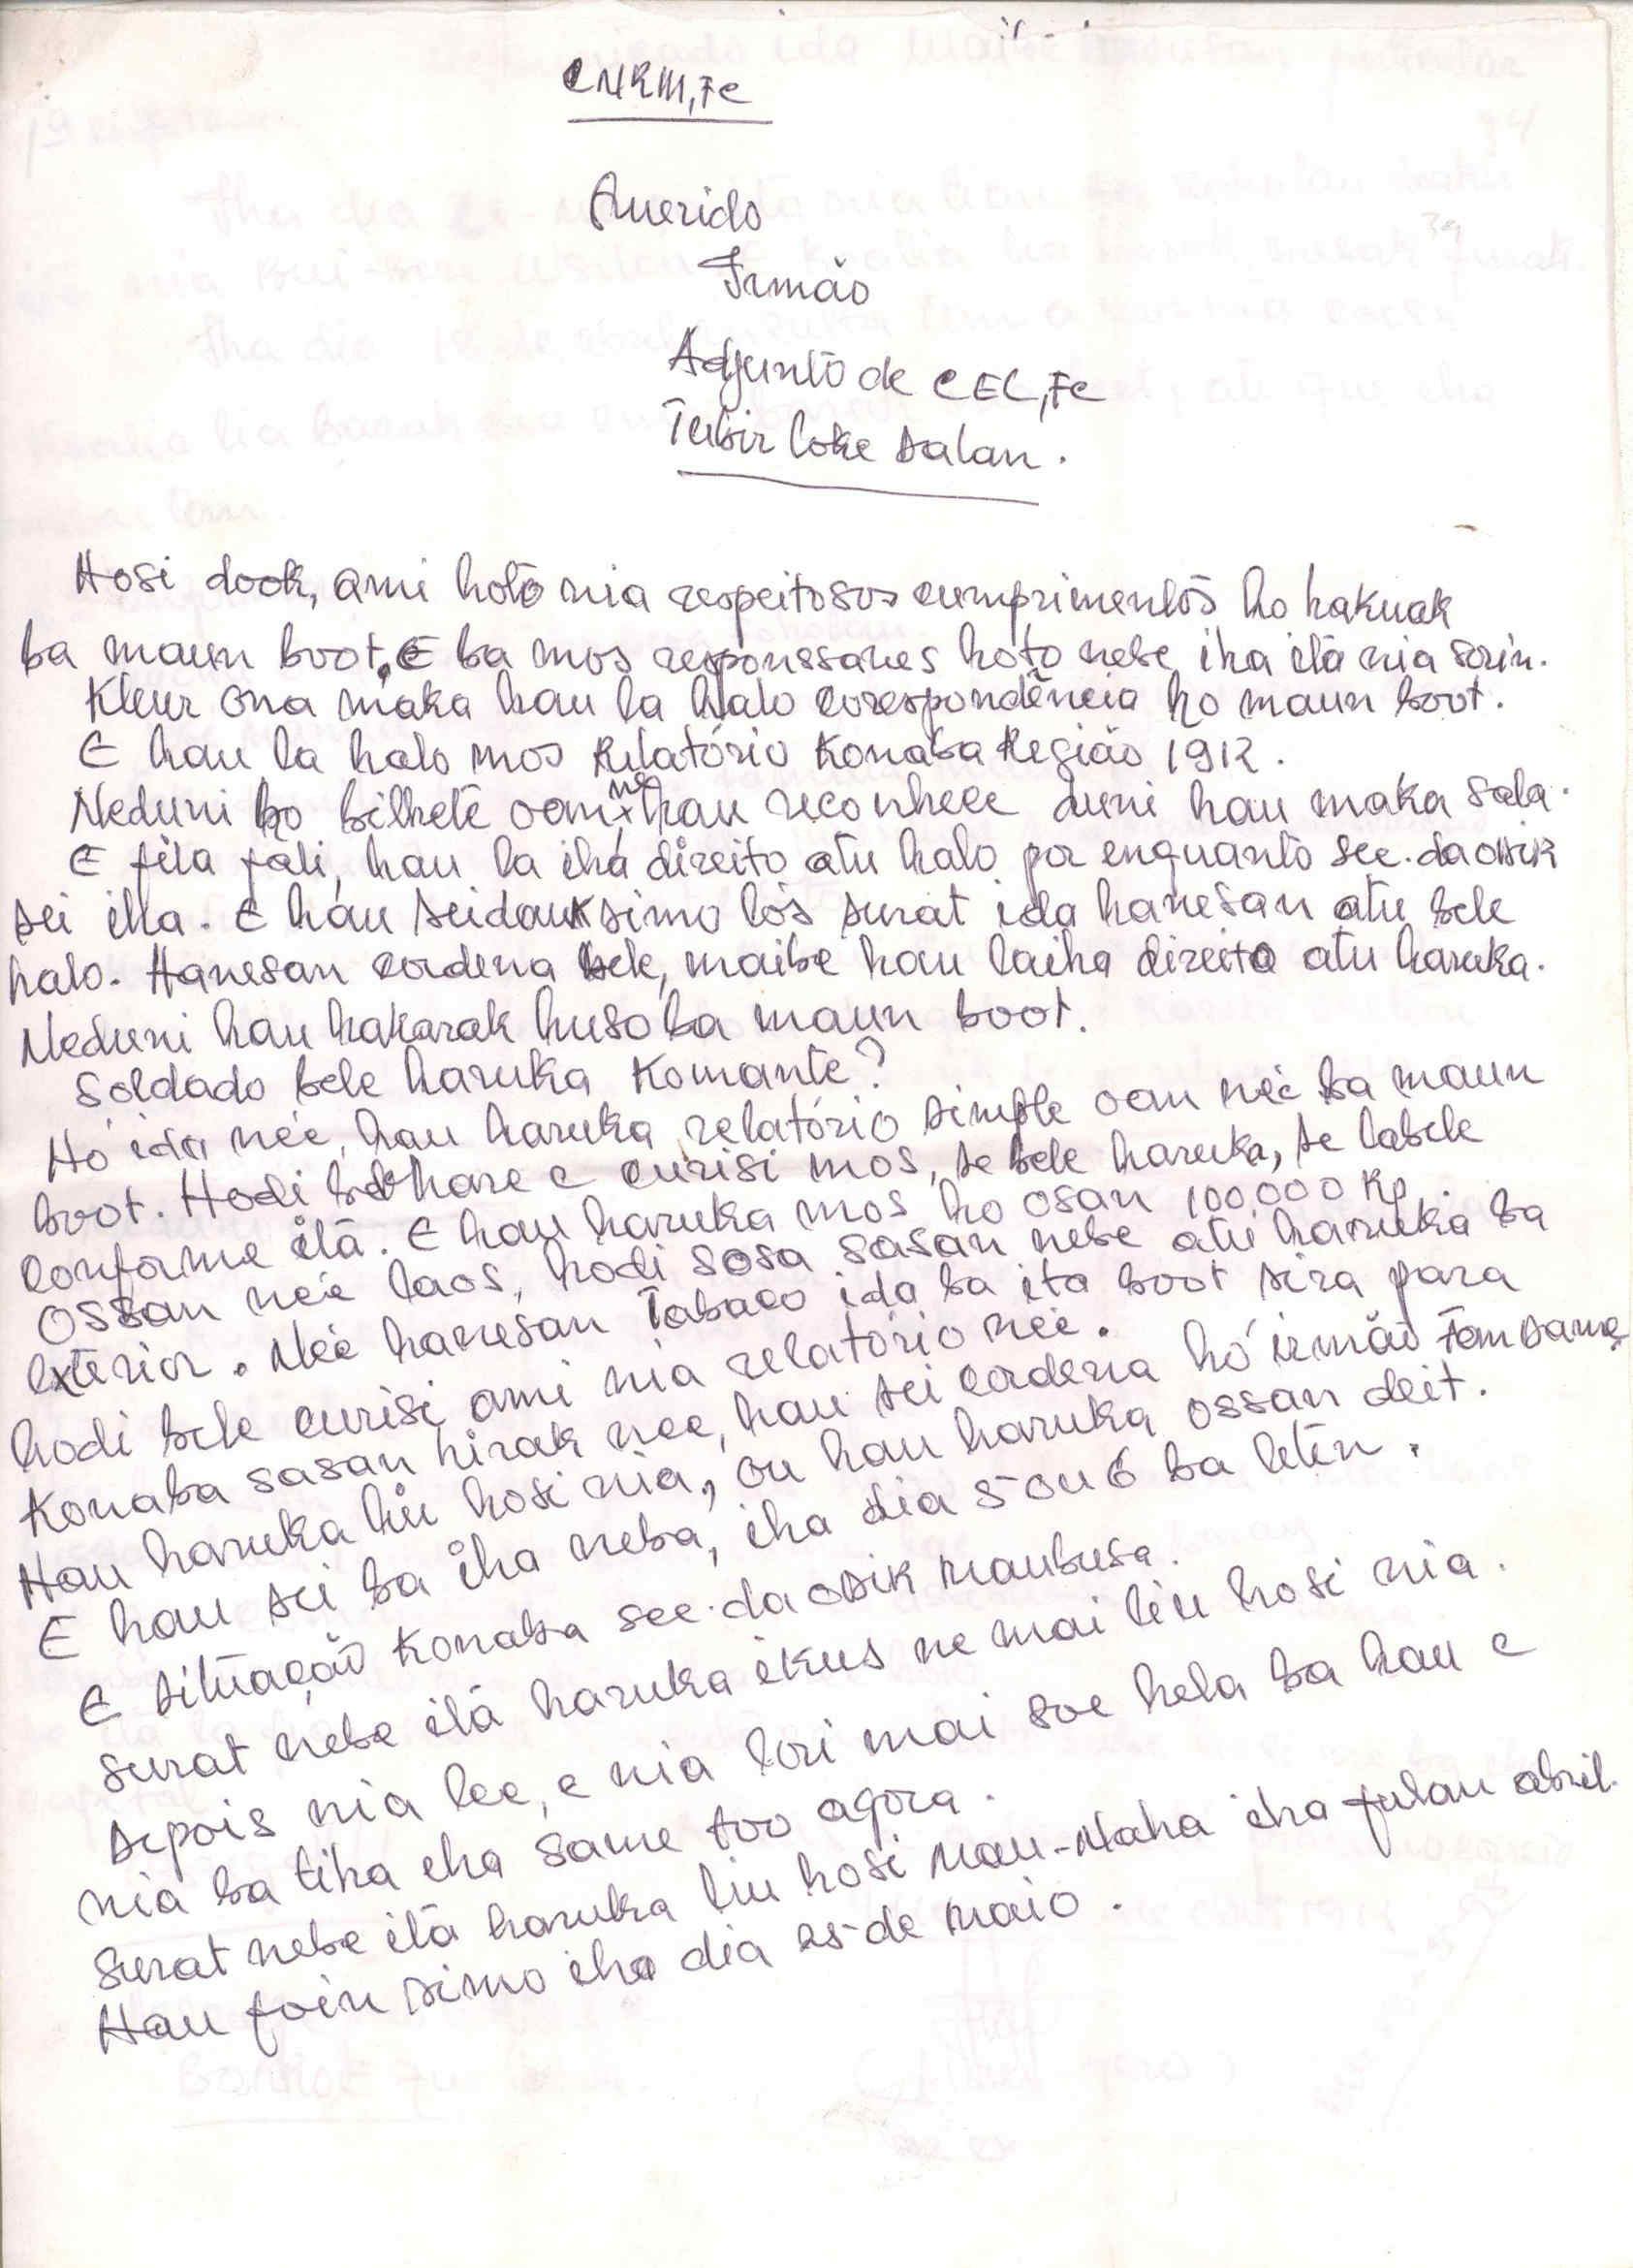 CNRM, FC
Querido
Irmão
Adjunto de CEL, FC
Tubir loke dalan.
Hosi dook, ami hotō nia respeitosos cumprimentōs ho hakuak
ba maun boot. E ba mos responssaves hoto nebe iha itā nia sorin.
Kleur ona maka hau la halo corespondência ho maun boot.
E hau la halo mos Relatório Konaba Região 1912.
Neduni ho bilhete oan ne hau reconhece duni hau maka sala.
E fila fali, hau la iha direito atu halo por enquanto sec. da OSSIK
sei iha. E hau seidauk simo los surat ida hanesan atu bele
halo. Hanesan cordena bele, maibe hau laiha direito atu haruka.
Neduni hau hakarak huso ba maun boot.
Soldado bele haruka Komante?
Hó ida neé, hau haruka relatório simple oan neé ba maun
boot. Hodi bele hare e curisi mos, se bele haruka, se labele
conforme itā. E hau haruka mos ho osan 100.000 Rp.
Ossan neé laos, hodi sosa sasan nebe atu haruka ba
exterior. Neé hanesan Tabaco ida ba ita boot sira para
hodi bele curisi ami nia relatório neé.
Konaba sasan hirak nee, hau sei cordena hó irmão Fem Same
Hau haruka liu hosi nia, ou hau haruka ossan deit.
E hau sei ba iha neba, iha dia 5 ou 6 ba letēn.
E situação Konaba sec. da OSSIK Maubusa.
Surat nebe itā haruka ikus ne mai liu hosi nia.
Depois nia lee, e nia lori mai soe hela ba hau e
nia ba tiha iha Same too agora.
Surat nebe itā haruka liu hosi Mau-Naha iha fulan abril.
Hau foin simo iha dia 25 de Maio.